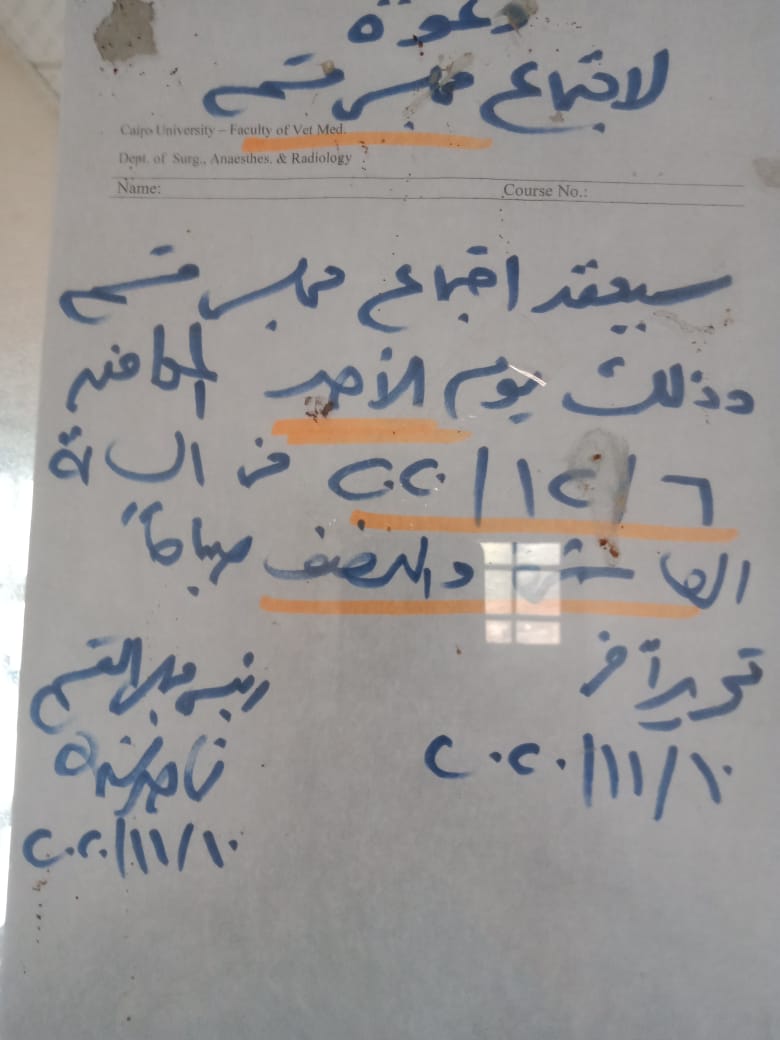 دعوة
لاجتماع مجلس قسم
Cairo University – Faculty of Vet Med.
Dept. of Surg., Anaesthes. & Radiology
Name: Course No.:
سيعقد اجتماع مجلس قسم
وذلك يوم الأحد الموافق
٦/١٢/٢٠٢٠ فى الساعة
العاشرة والنصف صباحاً
تحريراً فى رئيس مجلس القسم
٢٠٢٠/١١/١٠
٢٠٢٠/١١/١٠